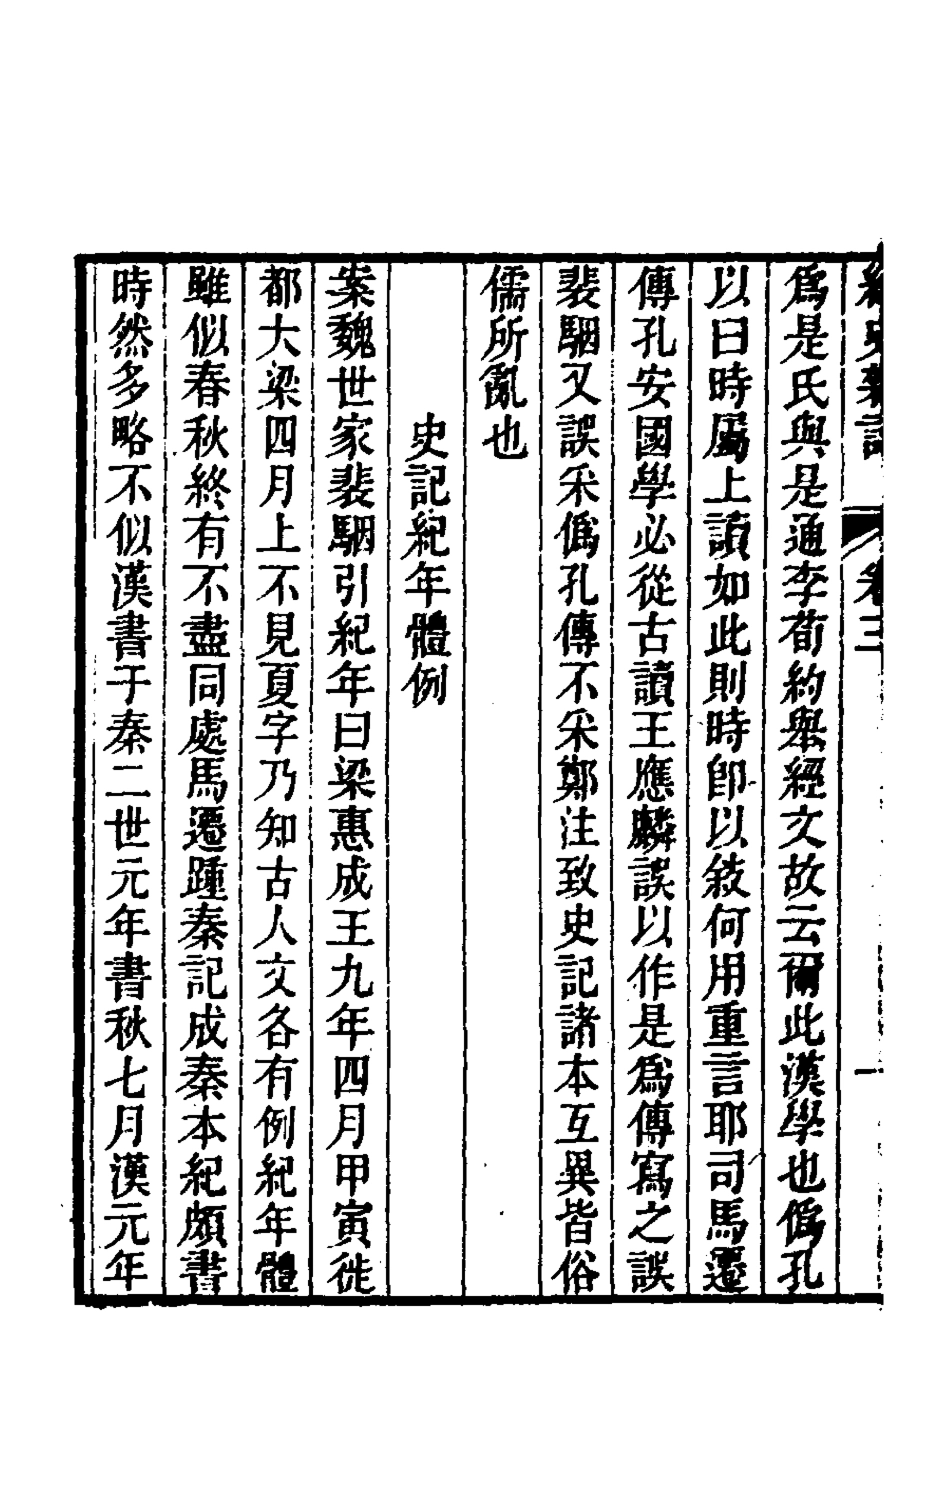 經史雜記 卷三 一
爲是氏與是通李荀約舉經文故云爾此漢學也僞孔
以曰時屬上讀如此則時卽以敍何用重言耶司馬遷
傳孔安國學必從古讀王應麟誤以作是爲傳寫之誤
裴駰又誤采僞孔傳不采鄭注致史記諸本互異皆俗
儒所亂也
史記紀年體例
案魏世家裴駰引紀年曰梁惠成王九年四月甲寅徙
都大梁四月上不見夏字乃知古人文各有例紀年體
雖似春秋終有不盡同處馬遷踵秦記成秦本紀頗書
時然多略不似漢書于秦二世元年書秋七月漢元年